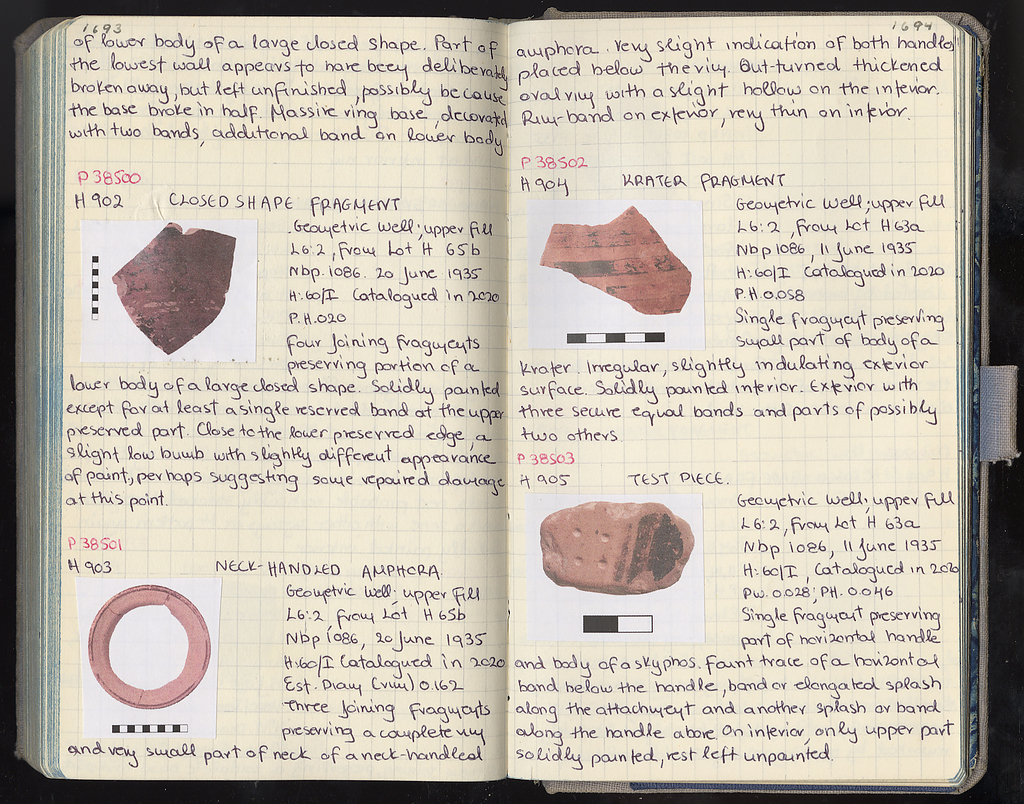 1693
of lower body of a large closed shape. Part of
the lowest wall appears to have been deliberately
broken away, but left unfinished, possibly because
the base broke in half. Massive ring base, decorated
with two bands, additional band on lower body
P 38500
H 902 CLOSED SHAPE FRAGMENT
Geometric well; upper fill
L6:2, from Lot H 65b
Nbp. 1086. 20 June 1935
H:60/I Catalogued in 2020
P.H.020
Four joining fragments
preserving portion of a
lower body of a large closed shape. Solidly painted
except for at least a single reserved band at the upper
preserved part. Close to the lower preserved edge, a
slight low bumb with slightly different appearance
of paint, perhaps suggesting some repaired damage
at this point.
P 38501
H 903 NECK-HANDLED AMPHORA
Geometric well; upper fill
L6:2, from Lot H 65b
Nbp 1086, 20 June 1935
H:60/I Catalogued in 2020
Est. Diam (rim) 0.162
Three joining fragments
preserving a complete rim
and very small part of neck of a neck-handled
1694
amphora. Very slight indication of both handles
placed below the rim. Out-turned thickened
oval rim with a slight hollow on the interior.
Rim-band on exterior, very thin on interior.
P 38502
H 904 KRATER FRAGMENT
Geometric well; upper fill
L6:2, from Lot H 63a
Nbp 1086, 11 June 1935
H:60/I Catalogued in 2020
P.H. 0.058
Single fragment preserving
small part of body of a
krater. Irregular, slightly indulating exterior
surface. Solidly painted interior. Exterior with
three secure equal bands and parts of possibly
two others
P 38503
H 905 TEST PIECE.
Geometric well; upper fill
L6:2, from Lot H 63a
Nbp 1086, 11 June 1935
H:60/I, Catalogued in 2020
Pw. 0.028; PH. 0.046
Single fragment preserving
part of horizontal handle
and body of a skyphos. Faint trace of a horizontal
band below the handle, band or elongated splash
along the attachment and another splash or band
along the handle above. On interior, only upper part
solidly painted, rest left unpainted.